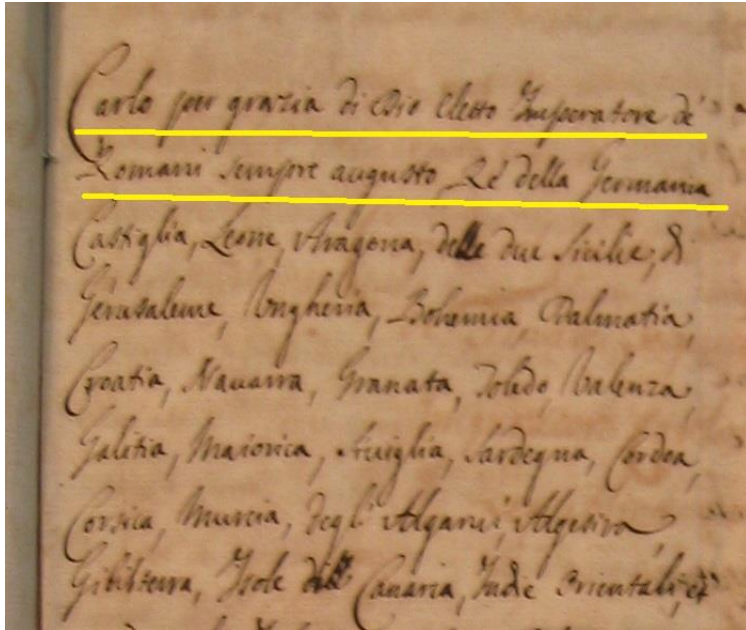 Carlo per grazia di Dio Eletto Imperatore de'
Romani sempre augusto Rè della Germania
Castiglia, Leone, Aragona, delle due Sicilie, di
Gerusaleme, Ungheria, Bohemia, Dalmatia,
Croatia, Navarra, Granata, Toledo, Valenza,
Galitia, Maiorica, Siviglia, Sardegna, Cordoa,
Corsica, Murcia, degl' Algarvi, Algesira,
Gibilterra, Isole di Canaria, Indie Orientali, et